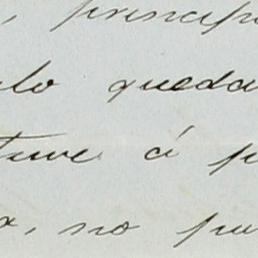 , princip
lo queda
tuve á p
, no pu